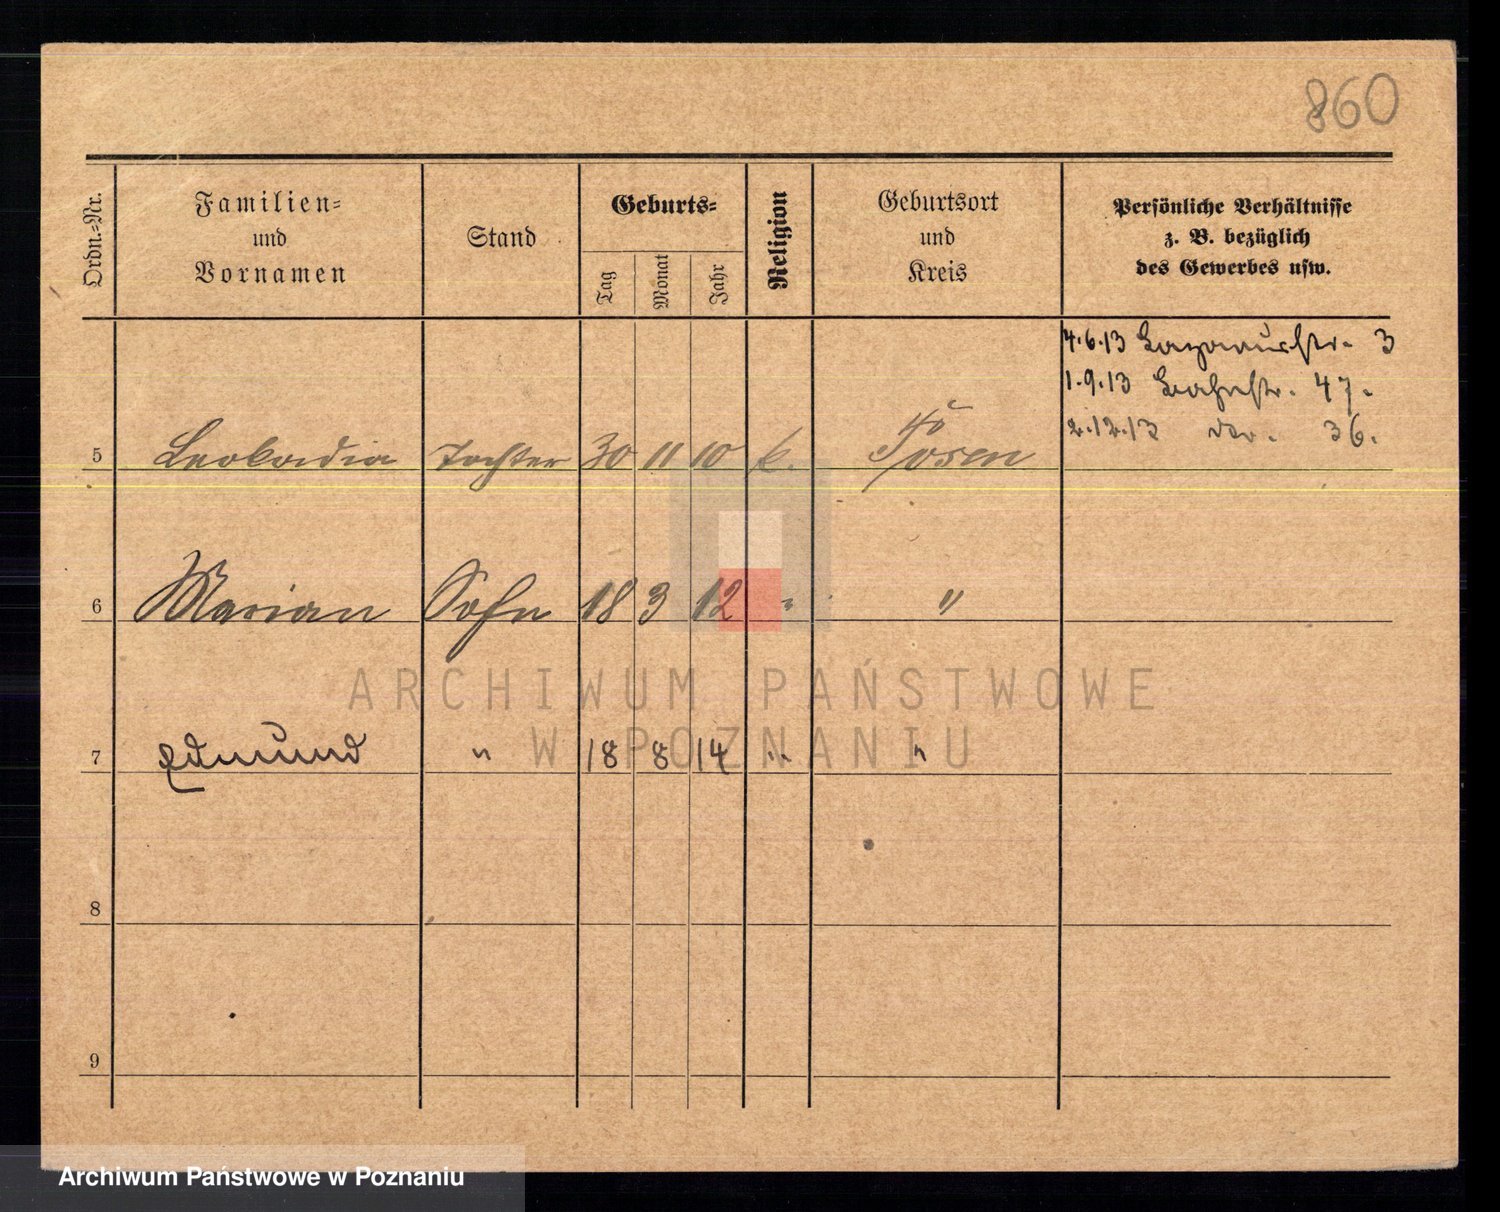 860
Ordn.-Nr.
Familien-
und
Vornamen
Stand
Geburts-
Tag
Monat
Jahr
Religion
Geburtsort
und
Kreis
Persönliche Verhältnisse
z. B. bezüglich
des Gewerbes usw.
4.6.13 Lazarusstr. 3
1.9.13 Bahnstr. 47.
2.12.13 36.
5 Leokadia Tochter 30 11 10 k. Posen
6 Marian Sohn 18 3 12 " "
7 Edmund " 18 8 14 " "
8
9
ARCHIWUM PAŃSTWOWE
W POZNANIU
Archiwum Państwowe w Poznaniu